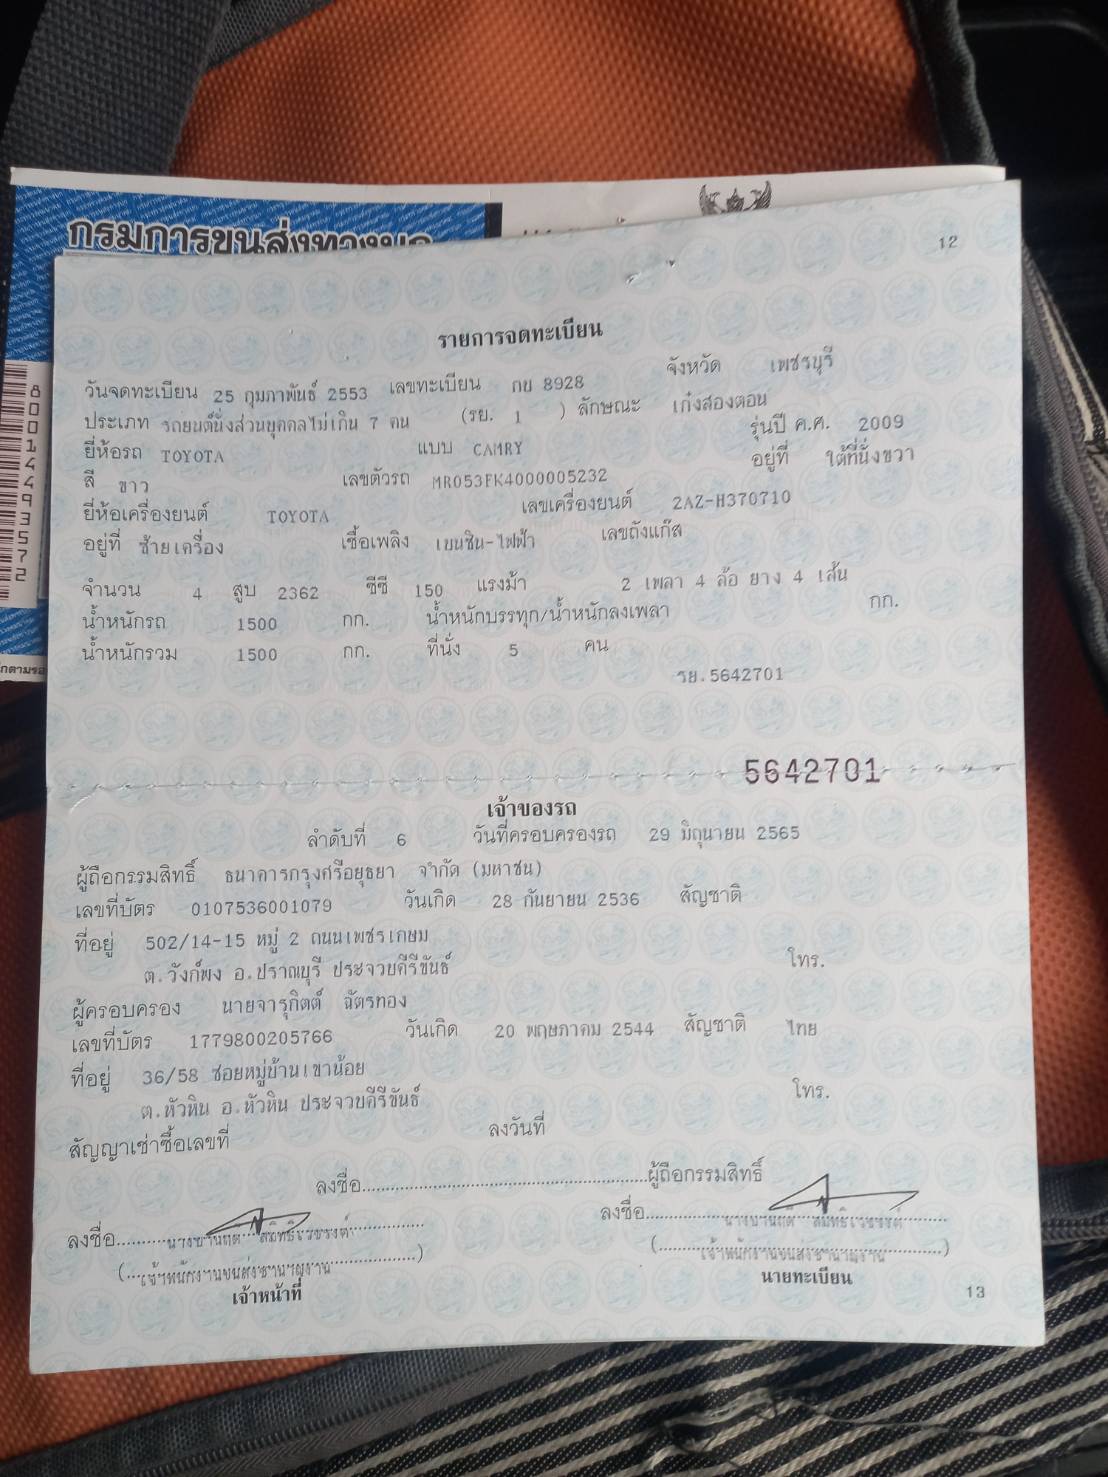 กรมการขนส่งทางบก
12
รายการจดทะเบียน
วันจดทะเบียน 25 กุมภาพันธ์ 2553 เลขทะเบียน กย 8928 จังหวัด เพชรบุรี
ประเภท รถยนต์นั่งส่วนบุคคลไม่เกิน 7 คน (รย. 1 ) ลักษณะ เก๋งสองตอน
ยี่ห้อรถ TOYOTA แบบ CAMRY รุ่นปี ค.ศ. 2009
สี ขาว เลขตัวรถ MR053FK4000005232 อยู่ที่ ใต้ที่นั่งขวา
ยี่ห้อเครื่องยนต์ TOYOTA เลขเครื่องยนต์ 2AZ-H370710
อยู่ที่ ซ้ายเครื่อง เชื้อเพลิง เบนซิน-ไฟฟ้า เลขถังแก๊ส
จำนวน 4 สูบ 2362 ซีซี 150 แรงม้า 2 เพลา 4 ล้อ ยาง 4 เส้น
น้ำหนักรถ 1500 กก. น้ำหนักบรรทุก/น้ำหนักลงเพลา กก.
น้ำหนักรวม 1500 กก. ที่นั่ง 5 คน
รย.5642701
5642701
เจ้าของรถ
ลำดับที่ 6 วันที่ครอบครองรถ 29 มิถุนายน 2565
ผู้ถือกรรมสิทธิ์ ธนาคารกรุงศรีอยุธยา จำกัด (มหาชน)
เลขที่บัตร 0107536001079 วันเกิด 28 กันยายน 2536 สัญชาติ
ที่อยู่ 502/14-15 หมู่ 2 ถนนเพชรเกษม
ต.วังก์พง อ.ปราณบุรี ประจวบคีรีขันธ์ โทร.
ผู้ครอบครอง นายจารุกิตต์ ฉัตรทอง
เลขที่บัตร 1779800205766 วันเกิด 20 พฤษภาคม 2544 สัญชาติ ไทย
ที่อยู่ 36/58 ซอยหมู่บ้านเขาน้อย
ต.หัวหิน อ.หัวหิน ประจวบคีรีขันธ์ โทร.
สัญญาเช่าซื้อเลขที่ ลงวันที่
ลงชื่อ ผู้ถือกรรมสิทธิ์
ลงชื่อ ลงชื่อ
เจ้าพนักงานขนส่งชำนาญงาน เจ้าพนักงานขนส่งชำนาญงาน
เจ้าหน้าที่ นายทะเบียน
13